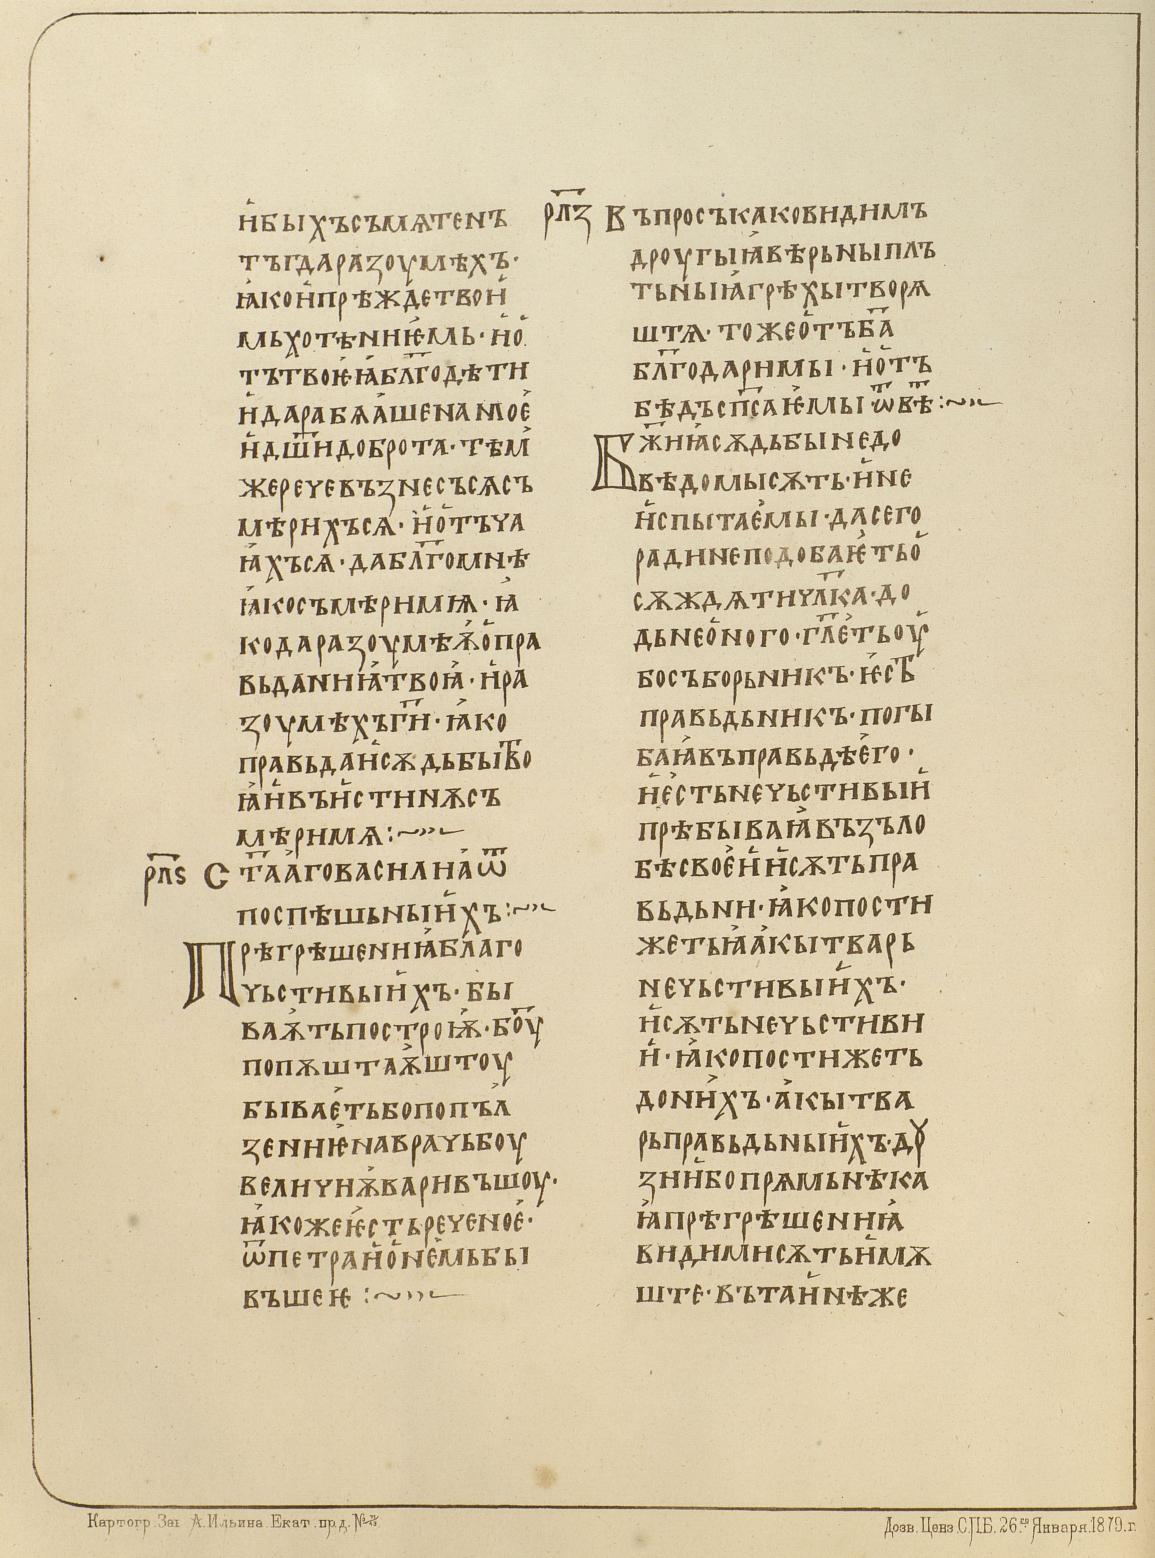 и҆быхъсъмѧтенъ
тъгдаразоумѣхъ·
ꙗ҆коипрѣждетвои҆
мьхотѣниѥ҆мь·и҆о҆
тътвоѥ҆ꙗ҆бл҃годѣти
и҆дарабѧа҆шенамое҆
и҆дш҃идоброта·тѣм
жеречевъзнесъсѧсъ
мѣрихъсѧ·и҆о҆тъча
ꙗ҆хъсѧ·дабл҃гомнѣ
ꙗ҆косъмѣримѩ·ꙗ҆
кодаразоумѣѫ҆о҆пра
вьданиꙗ҆твоꙗ҆·и҆ра
зоумѣхъг҃и·ꙗ҆ко
правьдаи҆сѫдьбытво
ꙗ҆и҆въи҆стинѫсъ
мѣримѧ:~
рл҃ѕ Ст҃аа҆говасилиа҆ѿ
поспѣшьныи҆хъ:~
Прѣгрѣшениꙗ҆благо
чьстивыи҆хъ·бы
ваѫ҆тьпостроѭ҆·бо҃у
попѫштаѫ҆штоу
бывае҆тьбопопъл
зениѥ҆наврачьбоу
величиѫ҆варивъшоу·
ꙗ҆кожеѥ҆стьреченое҆·
ѿпетраи҆о҆не҆мьбы
въшеѥ҆:~
рл҃з Въпросъкаковидимъ
дроугыꙗ҆вѣрьныплъ
тьныꙗ҆грѣхытворѧ
штѧ·тожео҆тъб҃а
бл҃годаримы·и҆о҆тъ
бѣдъсп҃саѥ҆мыѿвѣ:~
Бж҃иꙗ҆сѫдьбынедо
вѣдомысѫть·и҆не
и҆спытае҆мы·дасего
радинеподобаѥ҆тьо҆
сѫждѧтичл҃ка·до
дьнео҆ного·гл҃е҆тьоу҆
босъборьникъ·ѥ҆стъ
правьдьникъ·погы
баꙗ҆въправьдѣе҆го·
и҆е҆стьнечьстивыи҆
прѣбываꙗ҆възъло
бѣсвое҆и҆и҆сѫтьпра
вьдьни·ꙗ҆копости
жетьꙗ҆а҆кытварь
нечьстивыи҆хъ·
и҆сѫтьнечьстиви
и҆·ꙗ҆копостижеть
дони҆хъ·а҆кытва
рьправьдьныи҆хъ·дꙋ
зии҆бопрѧмьнѣка
ꙗ҆прѣгрѣшениꙗ҆
видимисѫтьи҆мѫ
ште·вътаи҆нѣже
Картогр. Зав. А. Ильина. Екат. пр. д.
Дозв. Ценз. С.П.Б. 26го Января. 1879. г.